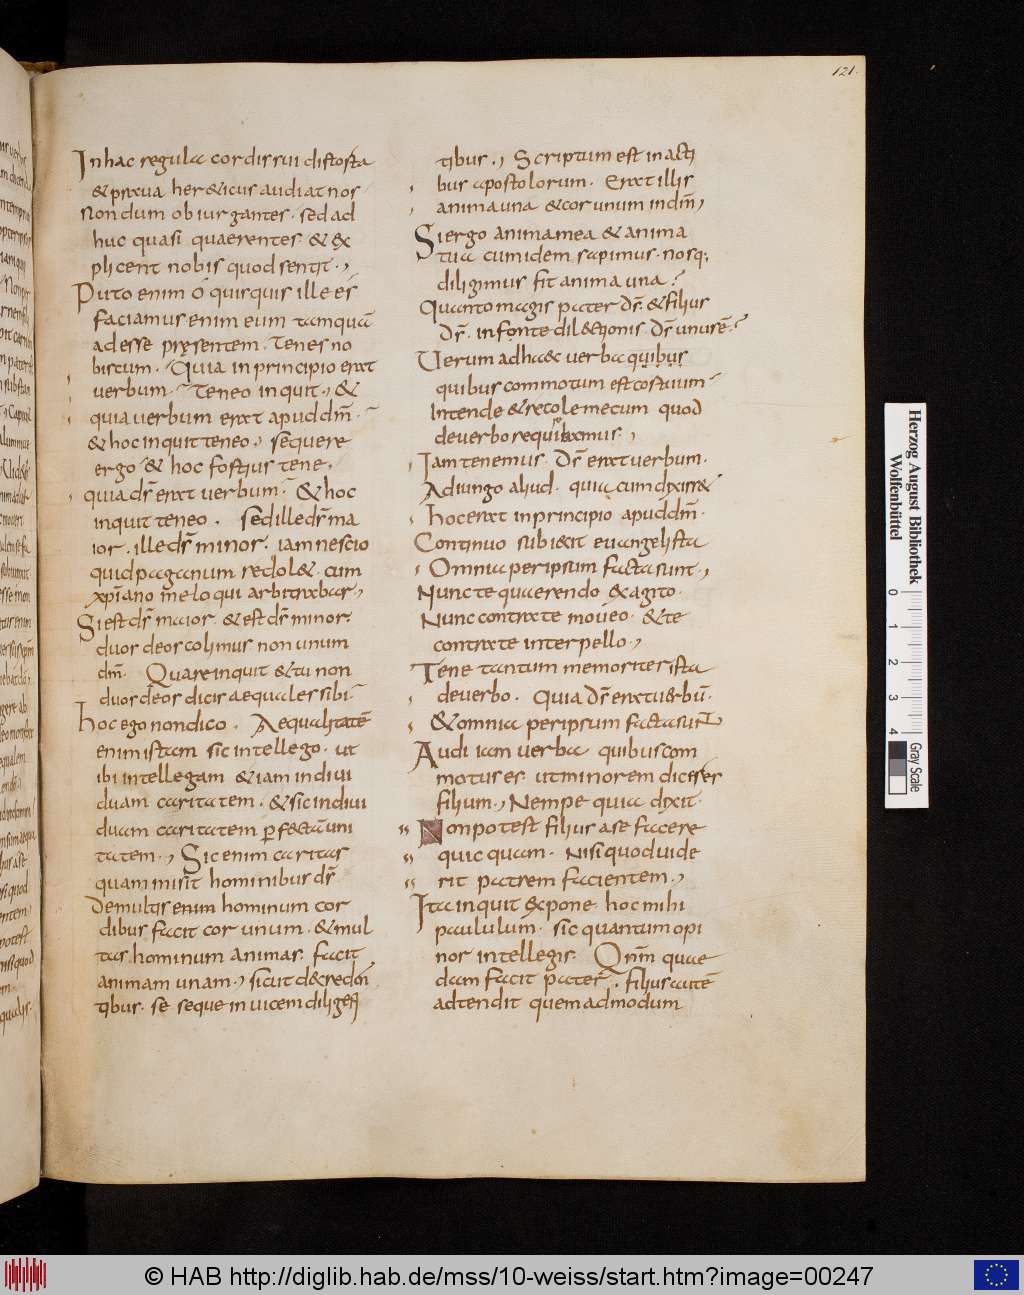 121.
In hac regula cordis sui distosta
& praua her&icus audiat nos
Non dum obiurgantes. sed ad
huc quasi quaerentes & ex
plicent nobis quod sentit.,
Puto enim ō quisquis ille es
faciamus enim eum tamquā
adesse pręsentem. Tenes no
biscum. Quia in principio erat
uerbum. Teneo inquit., &
quia uerbum erat apud dm̄.
& hoc inquit teneo, sequere
ergo & hoc fortius tene,
quia ds̄ erat uerbum. & hoc
inquit teneo. Sed ille ds̄ ma
ior. ille ds̄ minor. iam nescio
quid paganum redol&. cum
xp̄iano me loqui arbitrabar,
Si est ds̄ maior. & est ds̄ minor.
duos deos colimus non unum
dm̄. Quare inquit & tu non
duos deos dicis aequales sibi
hoc ego non dico. Aequalitatē
enim istam sic intellego. ut
ibi intellegam & iam indiui
duam caritatem. & si indiui
duam caritatem pfectā uni
tatem., Si enim caritas
quam misit hominibus ds̄
De multis enim hominum cor
dibus facit cor unum. & mul
tas hominum animas. facit
animam unam., sicut de creden
tibus. se seque inuicem diligen
tibus., Scriptum est in acti
bus apostolorum. Erat illis
anima una & cor unum in dm̄,
Si ergo anima mea & anima
tua cum idem sapimus. nosq;
diligimus fit anima una?
Quanto magis pater ds̄. & filius
ds̄. in fonte dilectionis. ds̄ unus ē?
Uerum ad haec uerba quibus
quibus commotum est cor tuum
Intende & recole mecum quod
de uerbo requirebamus.,
Iam tenemus. Ds̄ erat uerbum.
Adiungo aliud. quia cum dixiss&
hoc erat in principio apud dm̄.
Continuo subiecit euangelista
Omnia per ipsum facta sunt,
Nunc te quaerendo exagito.
Nunc contra te moueo. & te
contra te interpello.,
Tene tantum memoriter ista
de uerbo. Quia ds̄ erat uerbū.
& omnia per ipsum facta sunt
Audi iam uerba quibus com
motus es. ut minorem diceres
filium., Nempe quia dixit.
Non potest filius a se facere
quicquam. Nisi quod uide
rit patrem facientem.,
Ita inquit Expone hoc mihi
paululum. sic quantum opi
nor intellegis. Qnm̄ quae
dam facit pater. filius autē
adtendit quem ad modum
Herzog August Bibliothek
Wolfenbüttel
0 1 2 3 4
Gray Scale
© HAB http://diglib.hab.de/mss/10-weiss/start.htm?image=00247